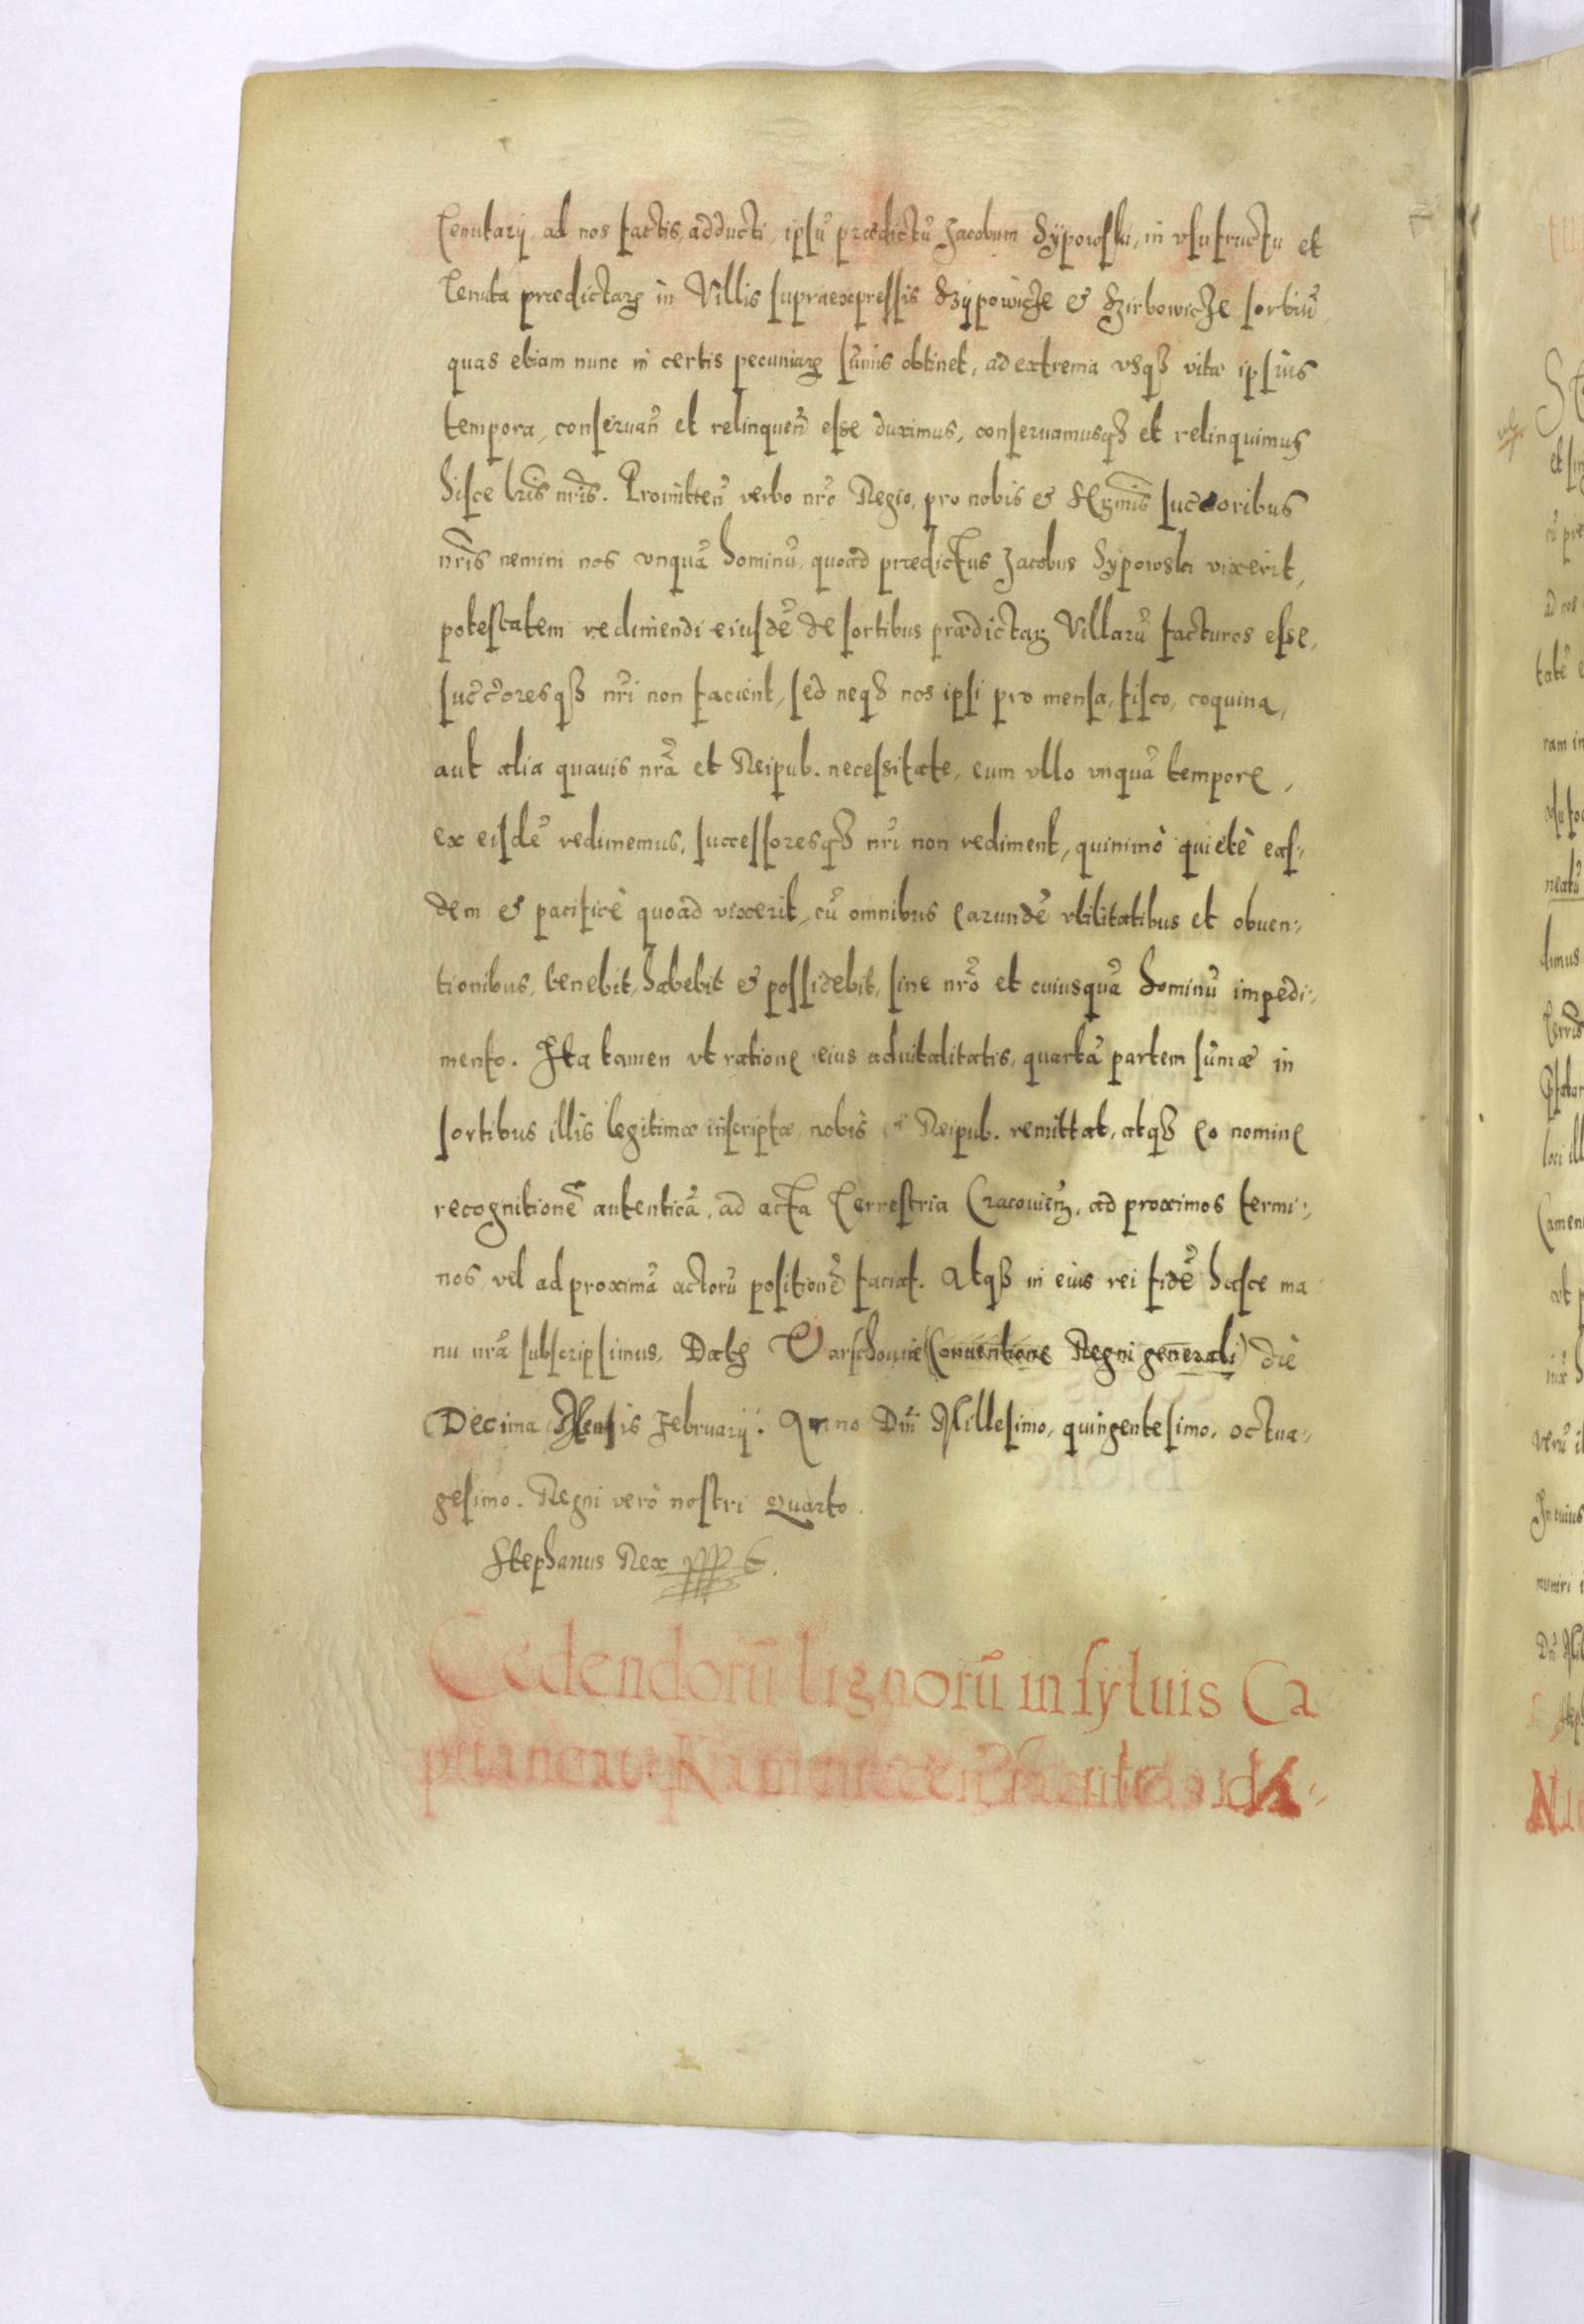 Tenutarÿ, ad nos factis, adducti, ipsũ prædictũ Jacobum Sÿpowski, in vsufructu et
Tenuta prædictarꝫ in Villis supraexpressis Szÿpowicze & Szirbowicze sortiũ,
quas etiam nunc in certis pecuniarꝫ sum̃is obtinet, ad extrema vsqꝫ vitæ ipsius
tempora, conseruañ et relinqueñ esse duximus, conseruamusqꝫ et relinquimus
hisce lr̃is nr̃is. Promitteñ verbo nr̃o Regio, pro nobis & Sẽgmis succ̃oribus
nr̃is nemini nos vnquã hominũ, quoad prædictus Jacobus Sypowski vixerit,
potestatem redimendi eiusdẽ de sortibus prædictarꝫ Villarũ facturos esse,
succ̃oresqꝫ nr̃i non facient, sed neqꝫ nos ipsi pro mensa, fisco, coquina,
aut alia quauis nr̃a et Reipub. necessitate, eum vllo vnquã tempore,
ex eisdẽ redimemus, successoresqꝫ nr̃i non rediment, quinimò quietè eas-
dem & pacificè quoad vixerit, cũ omnibus earundẽ vtilitatibus et obuen-
tionibus, tenebit, habebit & possidebit, sine nr̃o et cuiusquã hominũ impedi-
mento. Ita tamen vt ratione eius aduitalitatis, quartã partem sum̃æ in
sortibus illis legitimæ inscriptæ, nobis et Reipub. remittat, atqꝫ eo nomine
recognitionẽ autenticã, ad acta Terrestria Cracouieñ, ad proximos termi-
nos, vel ad proximã actorũ positionẽ faciat. Atqꝫ in eius rei fidẽ hasce ma
nu nr̃a subscripsimus, Datꝫ Varschouiæ (Conuentione Regni generali) die
Decima Mensis Februarÿ. Anno Dñi Millesimo, quingentesimo, octua-
gesimo. Regni verò nostri Quarto.
Stephanus Rex
Cedendorũ lignorũ in syluis Ca
pitaneatꝫ Kamenecen̄ facultas